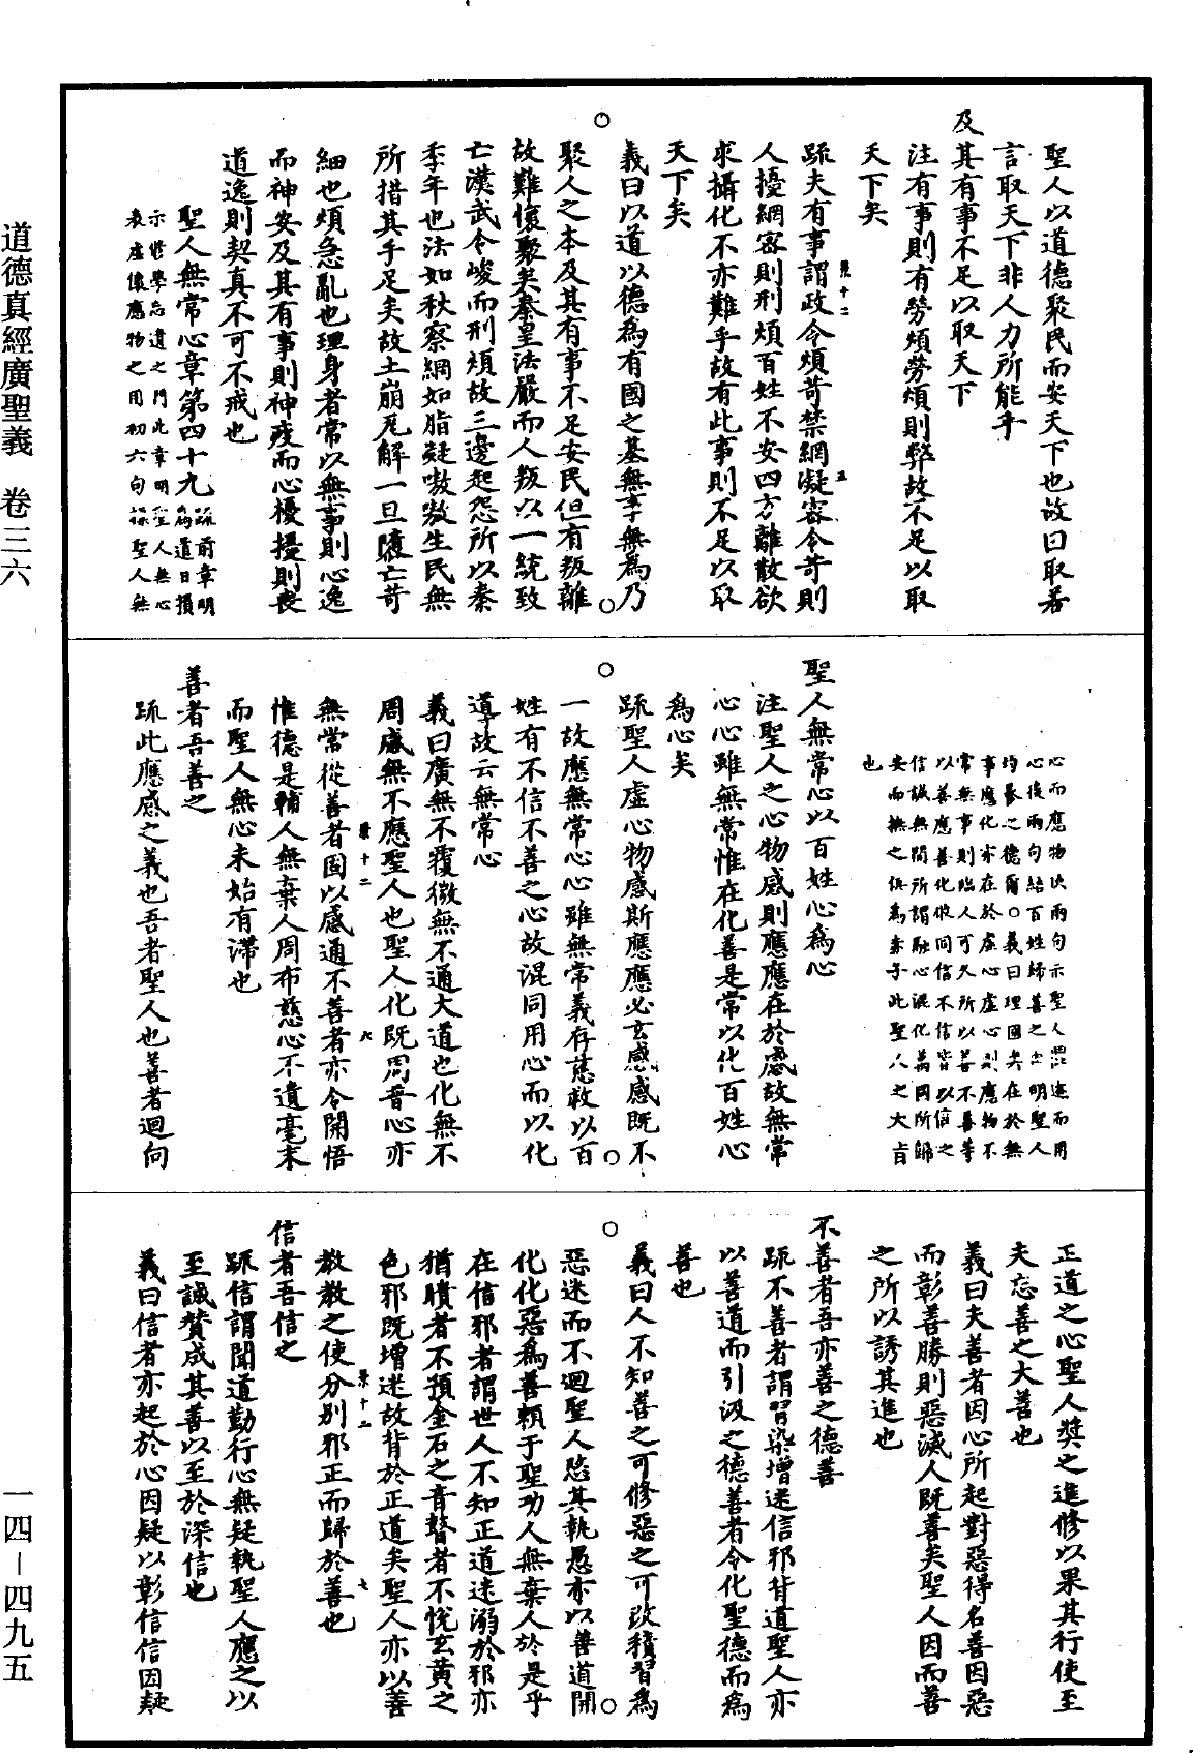 聖人以道德聚民而安天下也故曰取若
言取天下非人力所能乎
及其有事不足以取天下
注有事則有勞煩勞煩則弊故不足以取
天下矣
疏夫有事謂政令煩苛禁網凝密令苛則
人擾網密則刑煩百姓不安四方離散欲
求攝化不亦難乎故有此事則不足以取
天下矣
義曰以道以德為有國之基無事無為乃
聚人之本及其有事不足安民但有叛離
故難懷聚矣秦皇法嚴而人叛以一統致
亡漢武令峻而刑煩故三邊起怨所以秦
季年也法如秋察網如脂凝嗷嗷生民無
所措其手足矣故土崩瓦解一旦隳亡苛
細也煩急亂也理身者常以無事則心逸
而神安及其有事則神疲而心擾擾則喪
道逸則契真不可不戒也
聖人無常心章第四十九疏前章明為道日損
示修學忘遺之門此章明聖人無心
表虛懷應物之用初六句標聖人無
心而應物次兩句示聖人混迹而用
心後兩句結百姓歸善之由明聖人
均養之德爾○義曰理國失在於無
事應化求在於虛心虛心則應物不
常無事則臨人可久所以善不善等
以善應善化俶同信不信皆以信之
信誠無間所謂融心混化萬國所歸
安而撫之俱為赤子此聖人之大旨
也
聖人無常心以百姓心為心
注聖人之心物感則應應在於感故無常
心心雖無常惟在化善是常以化百姓心
為心矣
疏聖人虛心物感斯應應必玄感感既不
一故應無常心心雖無常義存慈救以百
姓有不信不善之心故混同用心而以化
導故云無常心
義曰廣無不覆微無不通大道也化無不
周感無不應聖人也聖人化既周普心亦
無常從善者固以感通不善者亦令開悟
惟德是輔人無棄人周布慈心不遺毫末
而聖人無心未始有滯也
善者吾善之
疏此應感之義也吾者聖人也善者迴向
正道之心聖人獎之進修以果其行使至
夫忘善之大善也
義曰夫善者因心所起對惡得名善因惡
而彰善勝則惡滅人既善矣聖人因而善
之所以誘其進也
不善者吾亦善之德善
疏不善者謂習染增迷信邪背道聖人亦
以善道而引汲之德善者令化聖德而為
善也
義曰人不知善之可修惡之可改積習為
惡迷而不迴聖人愍其執愚亦以善道開
化化惡為善賴于聖功人無棄人於是乎
在信邪者謂世人不知正道迷溺於邪亦
猶聵者不預金石之音瞽者不悅玄黃之
色邪既增迷故背於正道矣聖人亦以善
教教之使分別邪正而歸於善也
信者吾信之
疏信謂聞道勤行心無疑執聖人應之以
至誠贊成其善以至於深信也
義曰信者亦起於心因疑以彰信信因疑
道德真經廣聖義　卷三六
一四－四九五